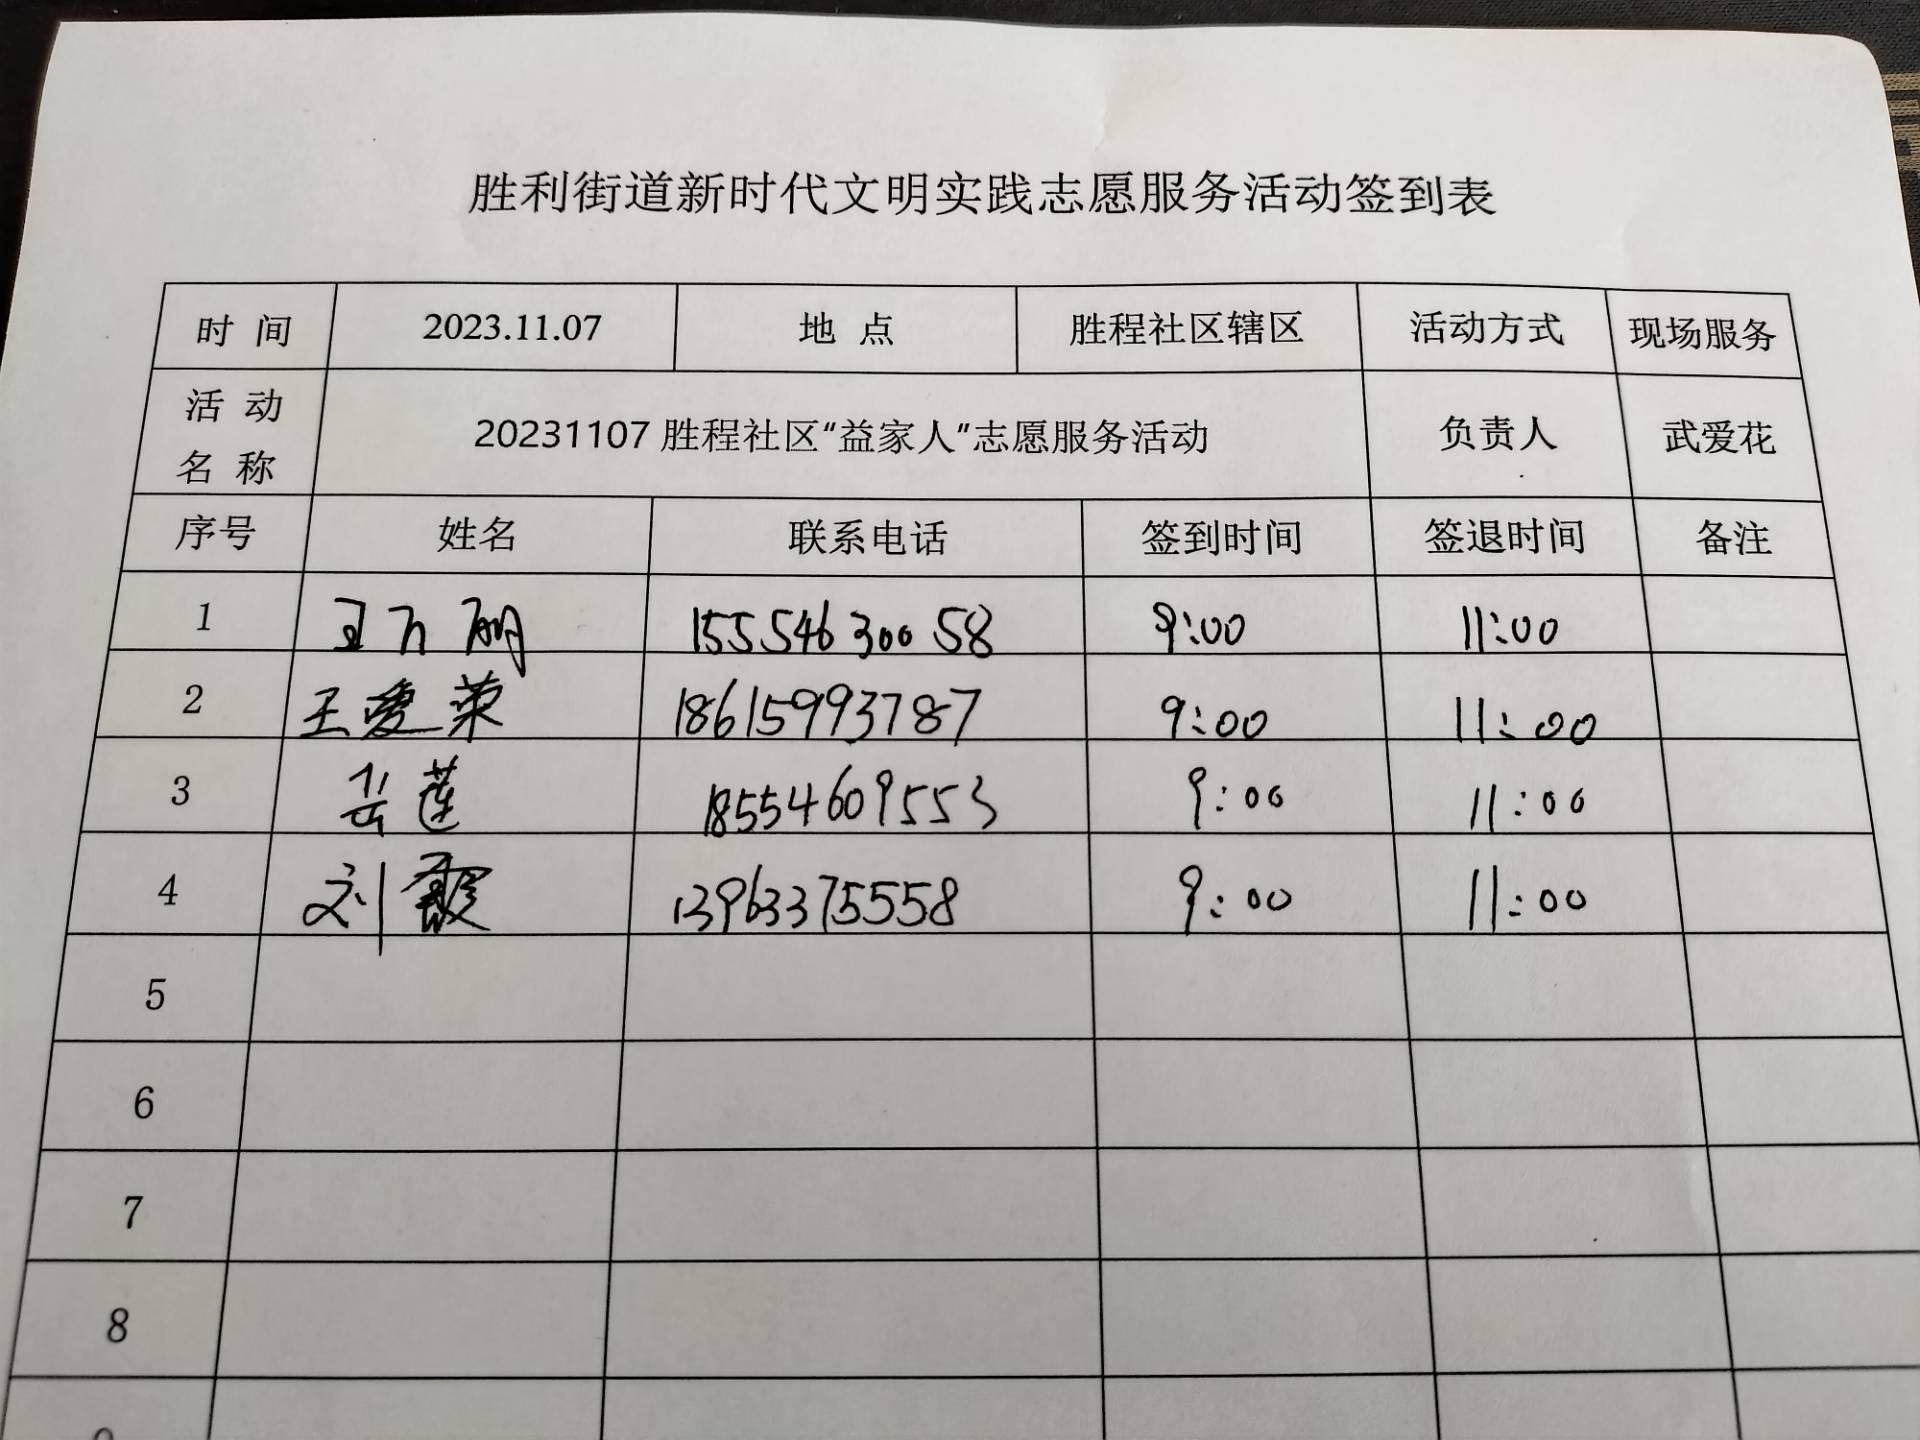 胜利街道新时代文明实践志愿服务活动签到表
时 间 2023.11.07 地 点 胜程社区辖区 活动方式 现场服务
活 动 名 称 20231107 胜程社区“益家人”志愿服务活动 负责人 武爱花
序号 姓名 联系电话 签到时间 签退时间 备注
1 王万 15554630058 9:00 11:00
2 王爱荣 18615993787 9:00 11:00
3 岳莲 18554609553 9:00 11:00
4 刘霞 13963375558 9:00 11:00
5
6
7
8